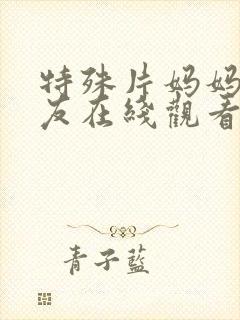 特殊片妈妈
友在綫觀看
青子藍